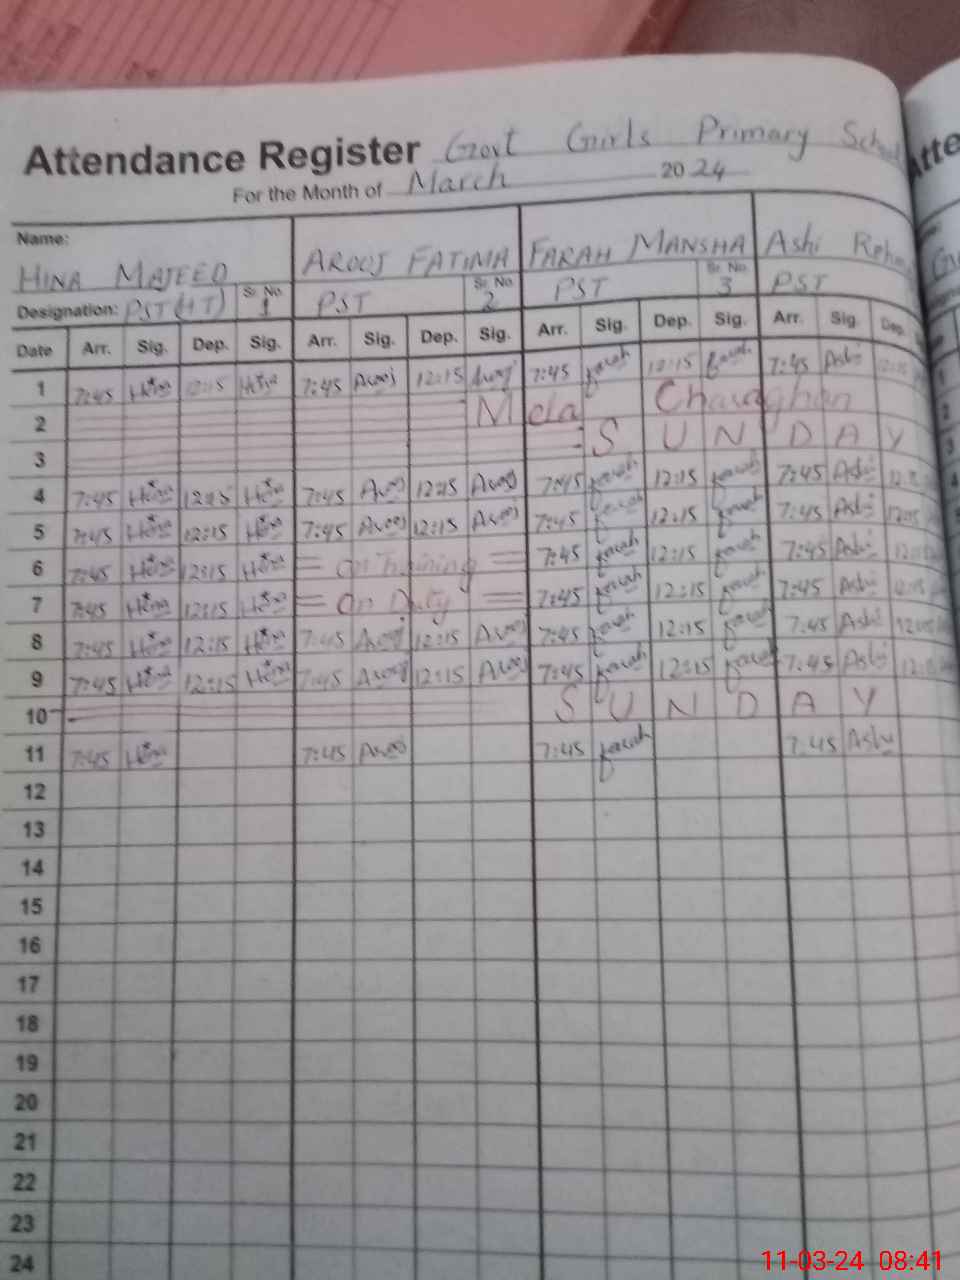 Attendance Register Govt Girls Primary School
For the Month of March 2024
Name: HINA MAJEED AROOJ FATIMA FARAH MANSHA Ashi
Designation: PST (HT) Sr. No. 1 PST Sr. No. 2 PST Sr. No. 3 PST
Date Arr. Sig. Dep. Sig. Arr. Sig. Dep. Sig. Arr. Sig. Dep. Sig. Arr. Sig. Dep.
1 7:45 Hina 12:15 Hina 7:45 Arooj 12:15 Arooj 7:45 farah 12:15 farah 7:45 Ashi 12:15
2 Mela Charaghan
3 S U N D A Y
4 7:45 Hina 12:15 Hina 7:45 Arooj 12:15 Arooj 7:45 farah 12:15 farah 7:45 Ashi
5 7:45 Hina 12:15 Hina 7:45 Arooj 12:15 Arooj 7:45 farah 12:15 farah 7:45 Ashi 12:15
6 7:45 Hina 12:15 Hina = On Training = 7:45 farah 12:15 farah 7:45 Ashi 12:15
7 7:45 Hina 12:15 Hina = On Duty = 7:45 farah 12:15 farah 7:45 Ashi 12:15
8 7:45 Hina 12:15 Hina 7:45 Arooj 12:15 Arooj 7:45 farah 12:15 farah 7:45 Ashi 12:15
9 7:45 Hina 12:15 Hina 7:45 Arooj 12:15 Arooj 7:45 farah 12:15 farah 7:45 Ashi 12:15
10 S U N D A Y
11 7:45 Hina 7:45 Arooj 7:45 farah 7:45 Ashi
12
13
14
15
16
17
18
19
20
21
22
23
24
11-03-24 08:41